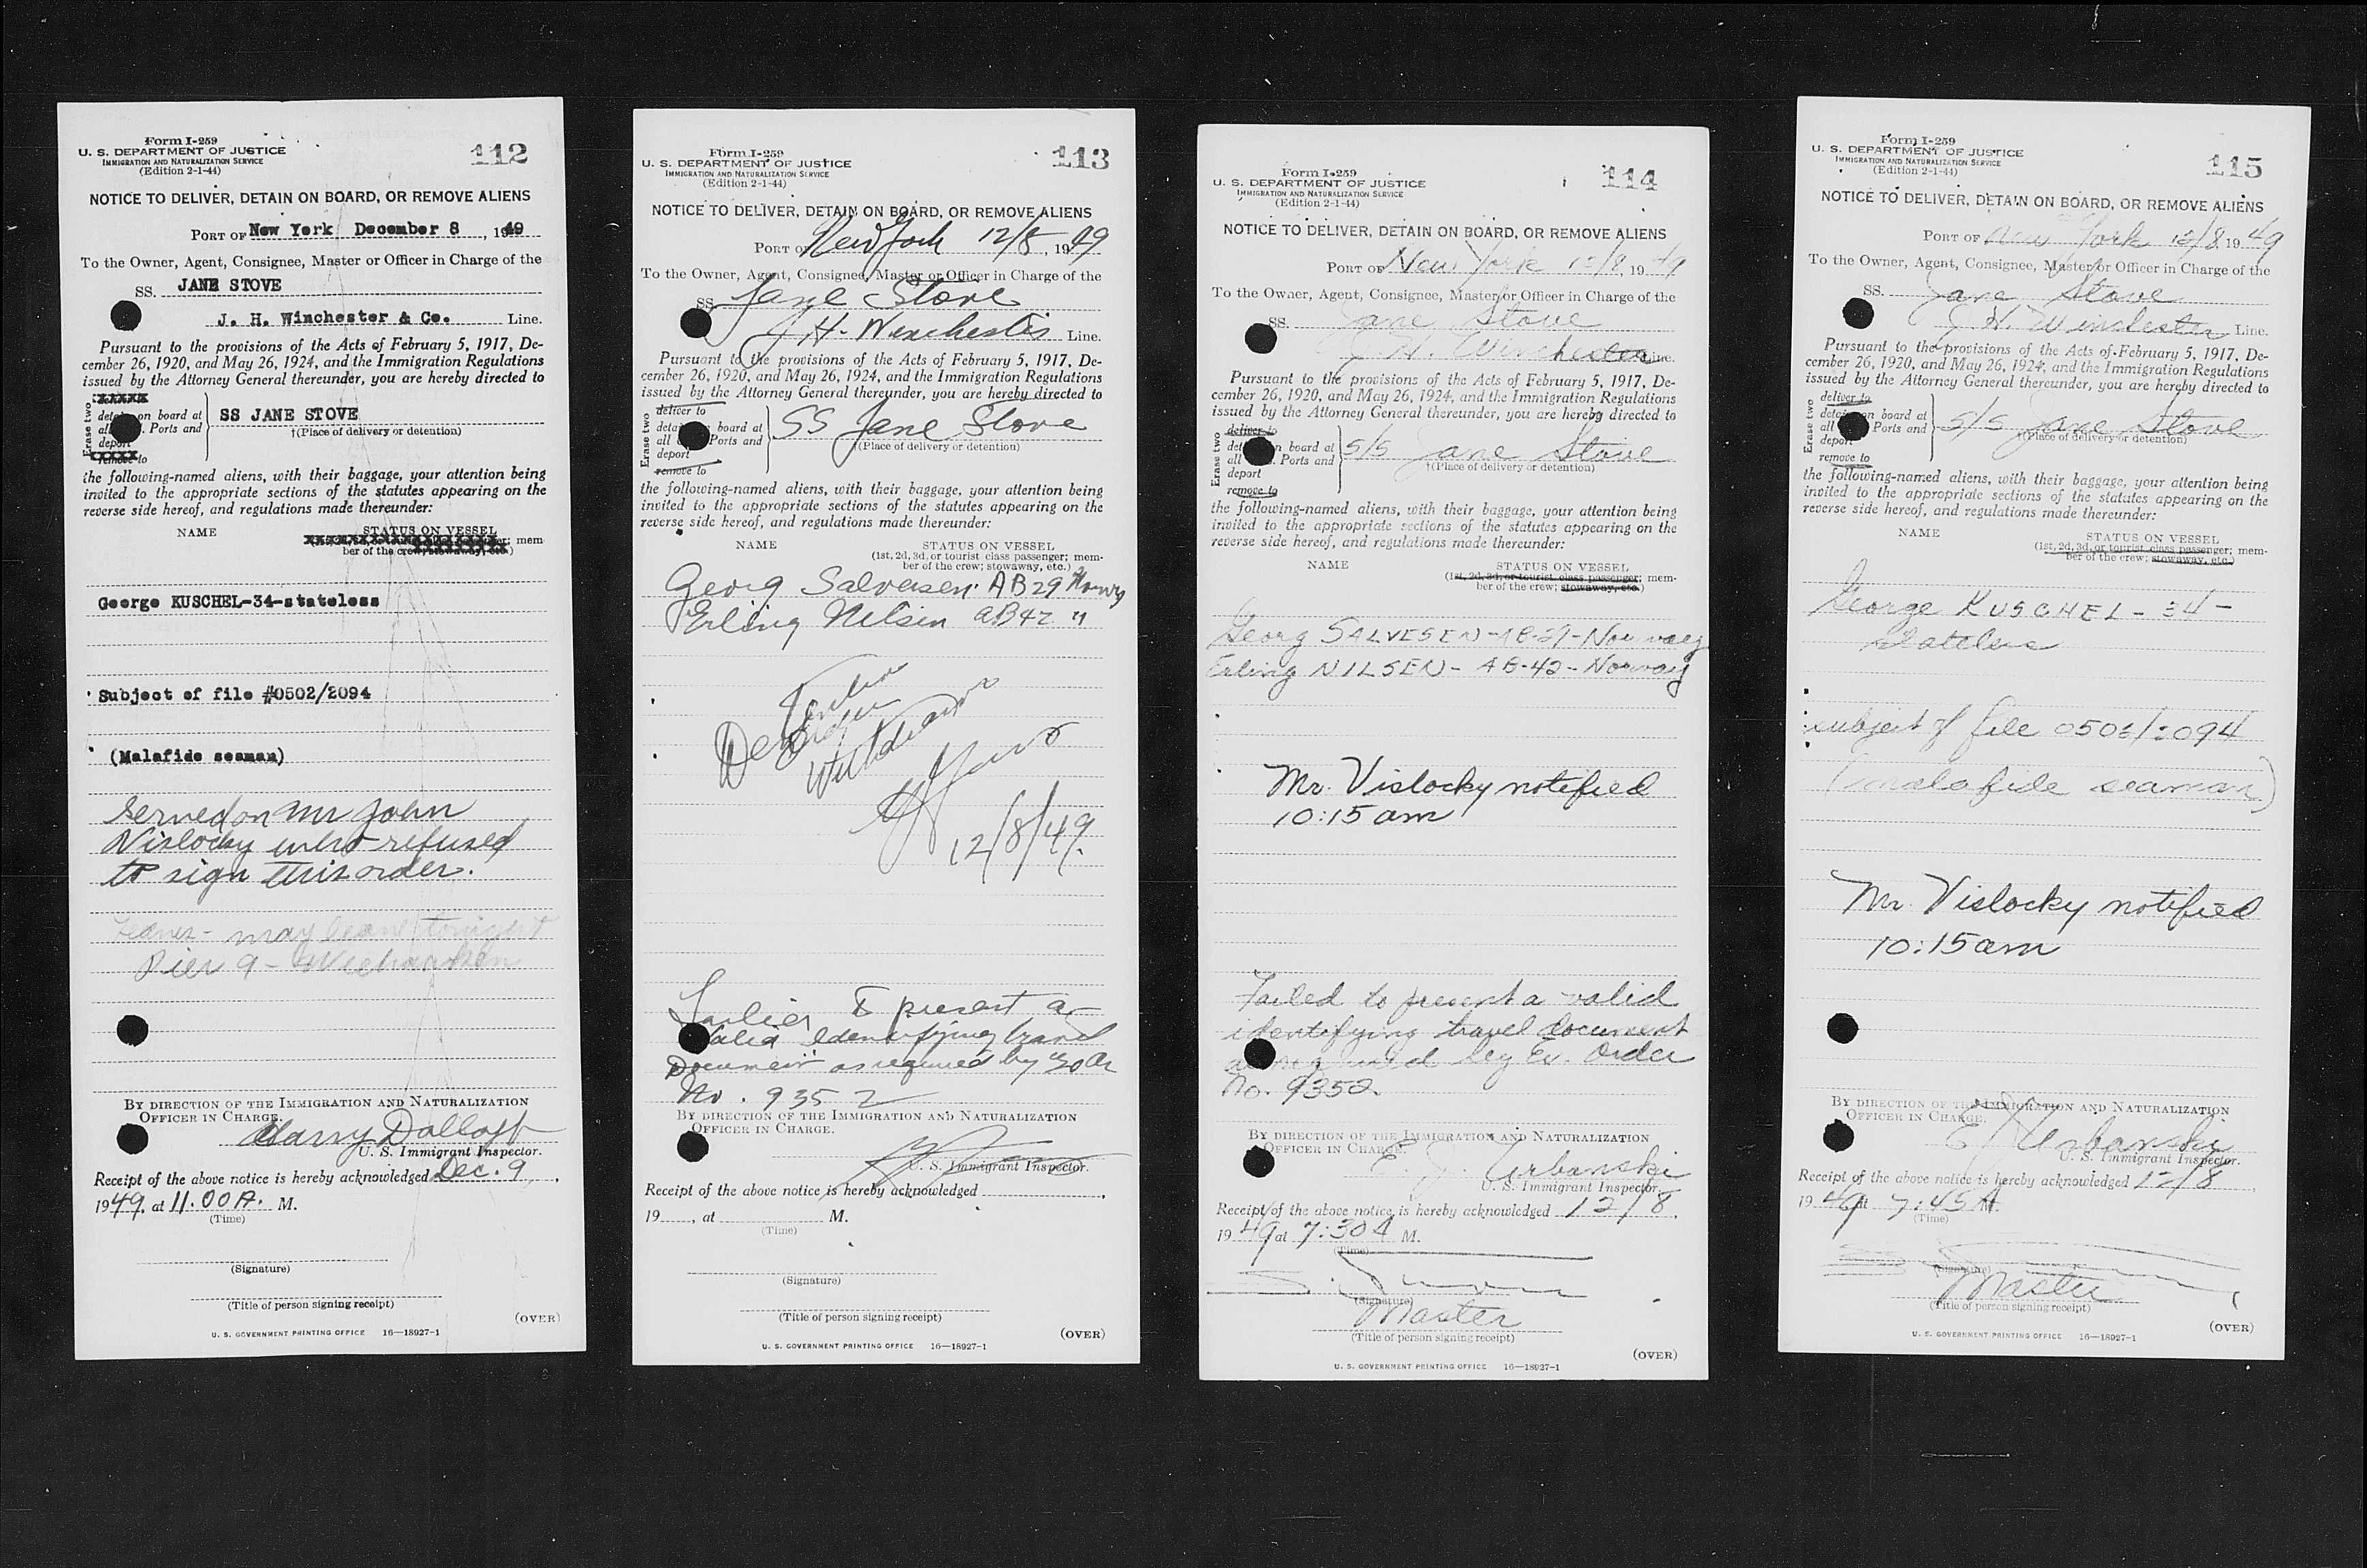 Form I-259
U. S. DEPARTMENT OF JUSTICE
IMMIGRATION AND NATURALIZATION SERVICE
(Edition 2-1-44)
112
NOTICE TO DELIVER, DETAIN ON BOARD, OR REMOVE ALIENS
PORT OF New York December 8, 1949
To the Owner, Agent, Consignee, Master or Officer in Charge of the
SS. JANE STOVE
J. H. Winchester & Co. Line.
Pursuant to the provisions of the Acts of February 5, 1917, De-
cember 26, 1920, and May 26, 1924, and the Immigration Regulations
issued by the Attorney General thereunder, you are hereby directed to
Erase two
on board at
Ports and
deport
remove to
SS JANE STOVE
†(Place of delivery or detention)
the following-named aliens, with their baggage, your attention being
invited to the appropriate sections of the statutes appearing on the
reverse side hereof, and regulations made thereunder:
NAME
STATUS ON VESSEL
mem-
ber of the crew; stowaway, etc.)
George KUSCHEL-34-stateless
Subject of file #0502/2094
(Malafide seaman)
Served on Mr John
Vislocky who refused
to sign this order.
may leave tonight
Pier 9 - Weehawken
BY DIRECTION OF THE IMMIGRATION AND NATURALIZATION
OFFICER IN CHARGE.
Harry
U. S. Immigrant Inspector.
Receipt of the above notice is hereby acknowledged Dec. 9,
1949, at 11.00 A. M.
(Time)
(Signature)
(Title of person signing receipt)
(OVER)
U. S. GOVERNMENT PRINTING OFFICE 16—18927-1
Form I-259
U. S. DEPARTMENT OF JUSTICE
IMMIGRATION AND NATURALIZATION SERVICE
(Edition 2-1-44)
113
NOTICE TO DELIVER, DETAIN ON BOARD, OR REMOVE ALIENS
PORT OF New York 12/8, 1949
To the Owner, Agent, Consignee, Master or Officer in Charge of the
SS. Jane Stove
J H. Winchester Line.
Pursuant to the provisions of the Acts of February 5, 1917, De-
cember 26, 1920, and May 26, 1924, and the Immigration Regulations
issued by the Attorney General thereunder, you are hereby directed to
Erase two
deliver to
board at
all Ports and
deport
remove to
SS Jane Stove
†(Place of delivery or detention)
the following-named aliens, with their baggage, your attention being
invited to the appropriate sections of the statutes appearing on the
reverse side hereof, and regulations made thereunder:
NAME
STATUS ON VESSEL
(1st, 2d, 3d, or tourist class passenger; mem-
ber of the crew; stowaway, etc.)
Georg Salvesen AB 29 Norway
Erling Nilsen AB 42 "
Withdrawn
12/8/49.
to present a
valid Identifying travel
Document as required by
No. 9352
BY DIRECTION OF THE IMMIGRATION AND NATURALIZATION
OFFICER IN CHARGE.
U. S. Immigrant Inspector.
Receipt of the above notice is hereby acknowledged
19, at M.
(Time)
(Signature)
(Title of person signing receipt)
(OVER)
U. S. GOVERNMENT PRINTING OFFICE 16—18927-1
Form I-259
U. S. DEPARTMENT OF JUSTICE
IMMIGRATION AND NATURALIZATION SERVICE
(Edition 2-1-44)
114
NOTICE TO DELIVER, DETAIN ON BOARD, OR REMOVE ALIENS
PORT OF New York 12/8, 1949
To the Owner, Agent, Consignee, Master or Officer in Charge of the
SS. Jane Stove
J. H. Winchester Line.
Pursuant to the provisions of the Acts of February 5, 1917, De-
cember 26, 1920, and May 26, 1924, and the Immigration Regulations
issued by the Attorney General thereunder, you are hereby directed to
Erase two
deliver to
on board at
all Ports and
deport
remove to
S/S Jane Stove
†(Place of delivery or detention)
the following-named aliens, with their baggage, your attention being
invited to the appropriate sections of the statutes appearing on the
reverse side hereof, and regulations made thereunder:
NAME
STATUS ON VESSEL
(1st, 2d, 3d, or tourist class passenger; mem-
ber of the crew; stowaway, etc.)
Georg SALVESEN - AB-29 - Norway
Erling NILSEN - AB-42 - Norway
Mr. Vislocky notified
10:15 am
Failed to present a valid
identifying travel document
as required by Ex. Order
No. 9352.
BY DIRECTION OF THE IMMIGRATION AND NATURALIZATION
OFFICER IN CHARGE.
E. J. Urbanski
U. S. Immigrant Inspector.
Receipt of the above notice is hereby acknowledged 12/8,
1949 at 7:30 A M.
(Time)
(Signature)
Master
(Title of person signing receipt)
(OVER)
U. S. GOVERNMENT PRINTING OFFICE 16—18927-1
Form I-259
U. S. DEPARTMENT OF JUSTICE
IMMIGRATION AND NATURALIZATION SERVICE
(Edition 2-1-44)
115
NOTICE TO DELIVER, DETAIN ON BOARD, OR REMOVE ALIENS
PORT OF New York 12/8, 1949
To the Owner, Agent, Consignee, Master or Officer in Charge of the
SS. Jane Stove
J. H. Winchester Line.
Pursuant to the provisions of the Acts of February 5, 1917, De-
cember 26, 1920, and May 26, 1924, and the Immigration Regulations
issued by the Attorney General thereunder, you are hereby directed to
Erase two
deliver to
on board at
all Ports and
deport
remove to
S/S Jane Stove
†(Place of delivery or detention)
the following-named aliens, with their baggage, your attention being
invited to the appropriate sections of the statutes appearing on the
reverse side hereof, and regulations made thereunder:
NAME
STATUS ON VESSEL
(1st, 2d, 3d, or tourist class passenger; mem-
ber of the crew; stowaway, etc.)
George KUSCHEL - 34 -
stateless
subject of file 0502/2094
(malafide seaman)
Mr. Vislocky notified
10:15 am
BY DIRECTION OF THE IMMIGRATION AND NATURALIZATION
OFFICER IN CHARGE.
E J Urbanski
U. S. Immigrant Inspector.
Receipt of the above notice is hereby acknowledged 12/8,
1949 at 7:45 A M.
(Time)
(Signature)
Master
(Title of person signing receipt)
(OVER)
U. S. GOVERNMENT PRINTING OFFICE 16—18927-1